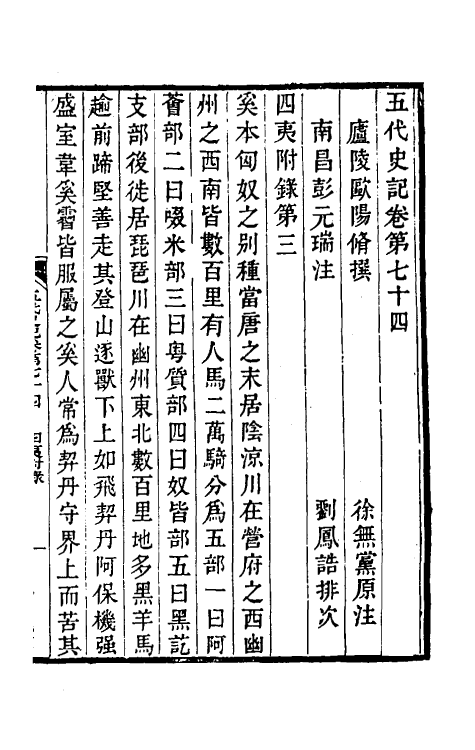 五代史記卷第七十四
廬陵歐陽脩撰　徐無黨原注
南昌彭元瑞注　劉鳳誥排次
四夷附錄第三
奚本匈奴之别種當唐之末居陰涼川在營府之西幽
州之西南皆數百里有人馬二萬騎分爲五部一曰阿
薈部二曰啜米部三曰粤質部四曰奴皆部五曰黑訖
支部後徙居琵琶川在幽州東北數百里地多黑羊馬
趫前蹄堅善走其登山逐獸下上如飛契丹阿保機强
盛室韋奚霫皆服屬之奚人常爲契丹守界上而苦其
五代史記卷第七十四　四夷附錄　一